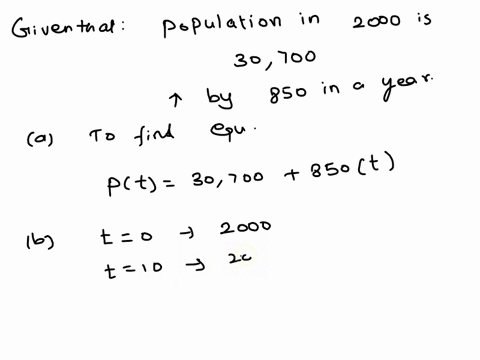 Giventhat: Population in 2000 is
30,700
↑ by 850 in a year.
(a) To find equ.
P(t) = 30,700 + 850(t)
(b) t = 0 → 2000
t = 10 →